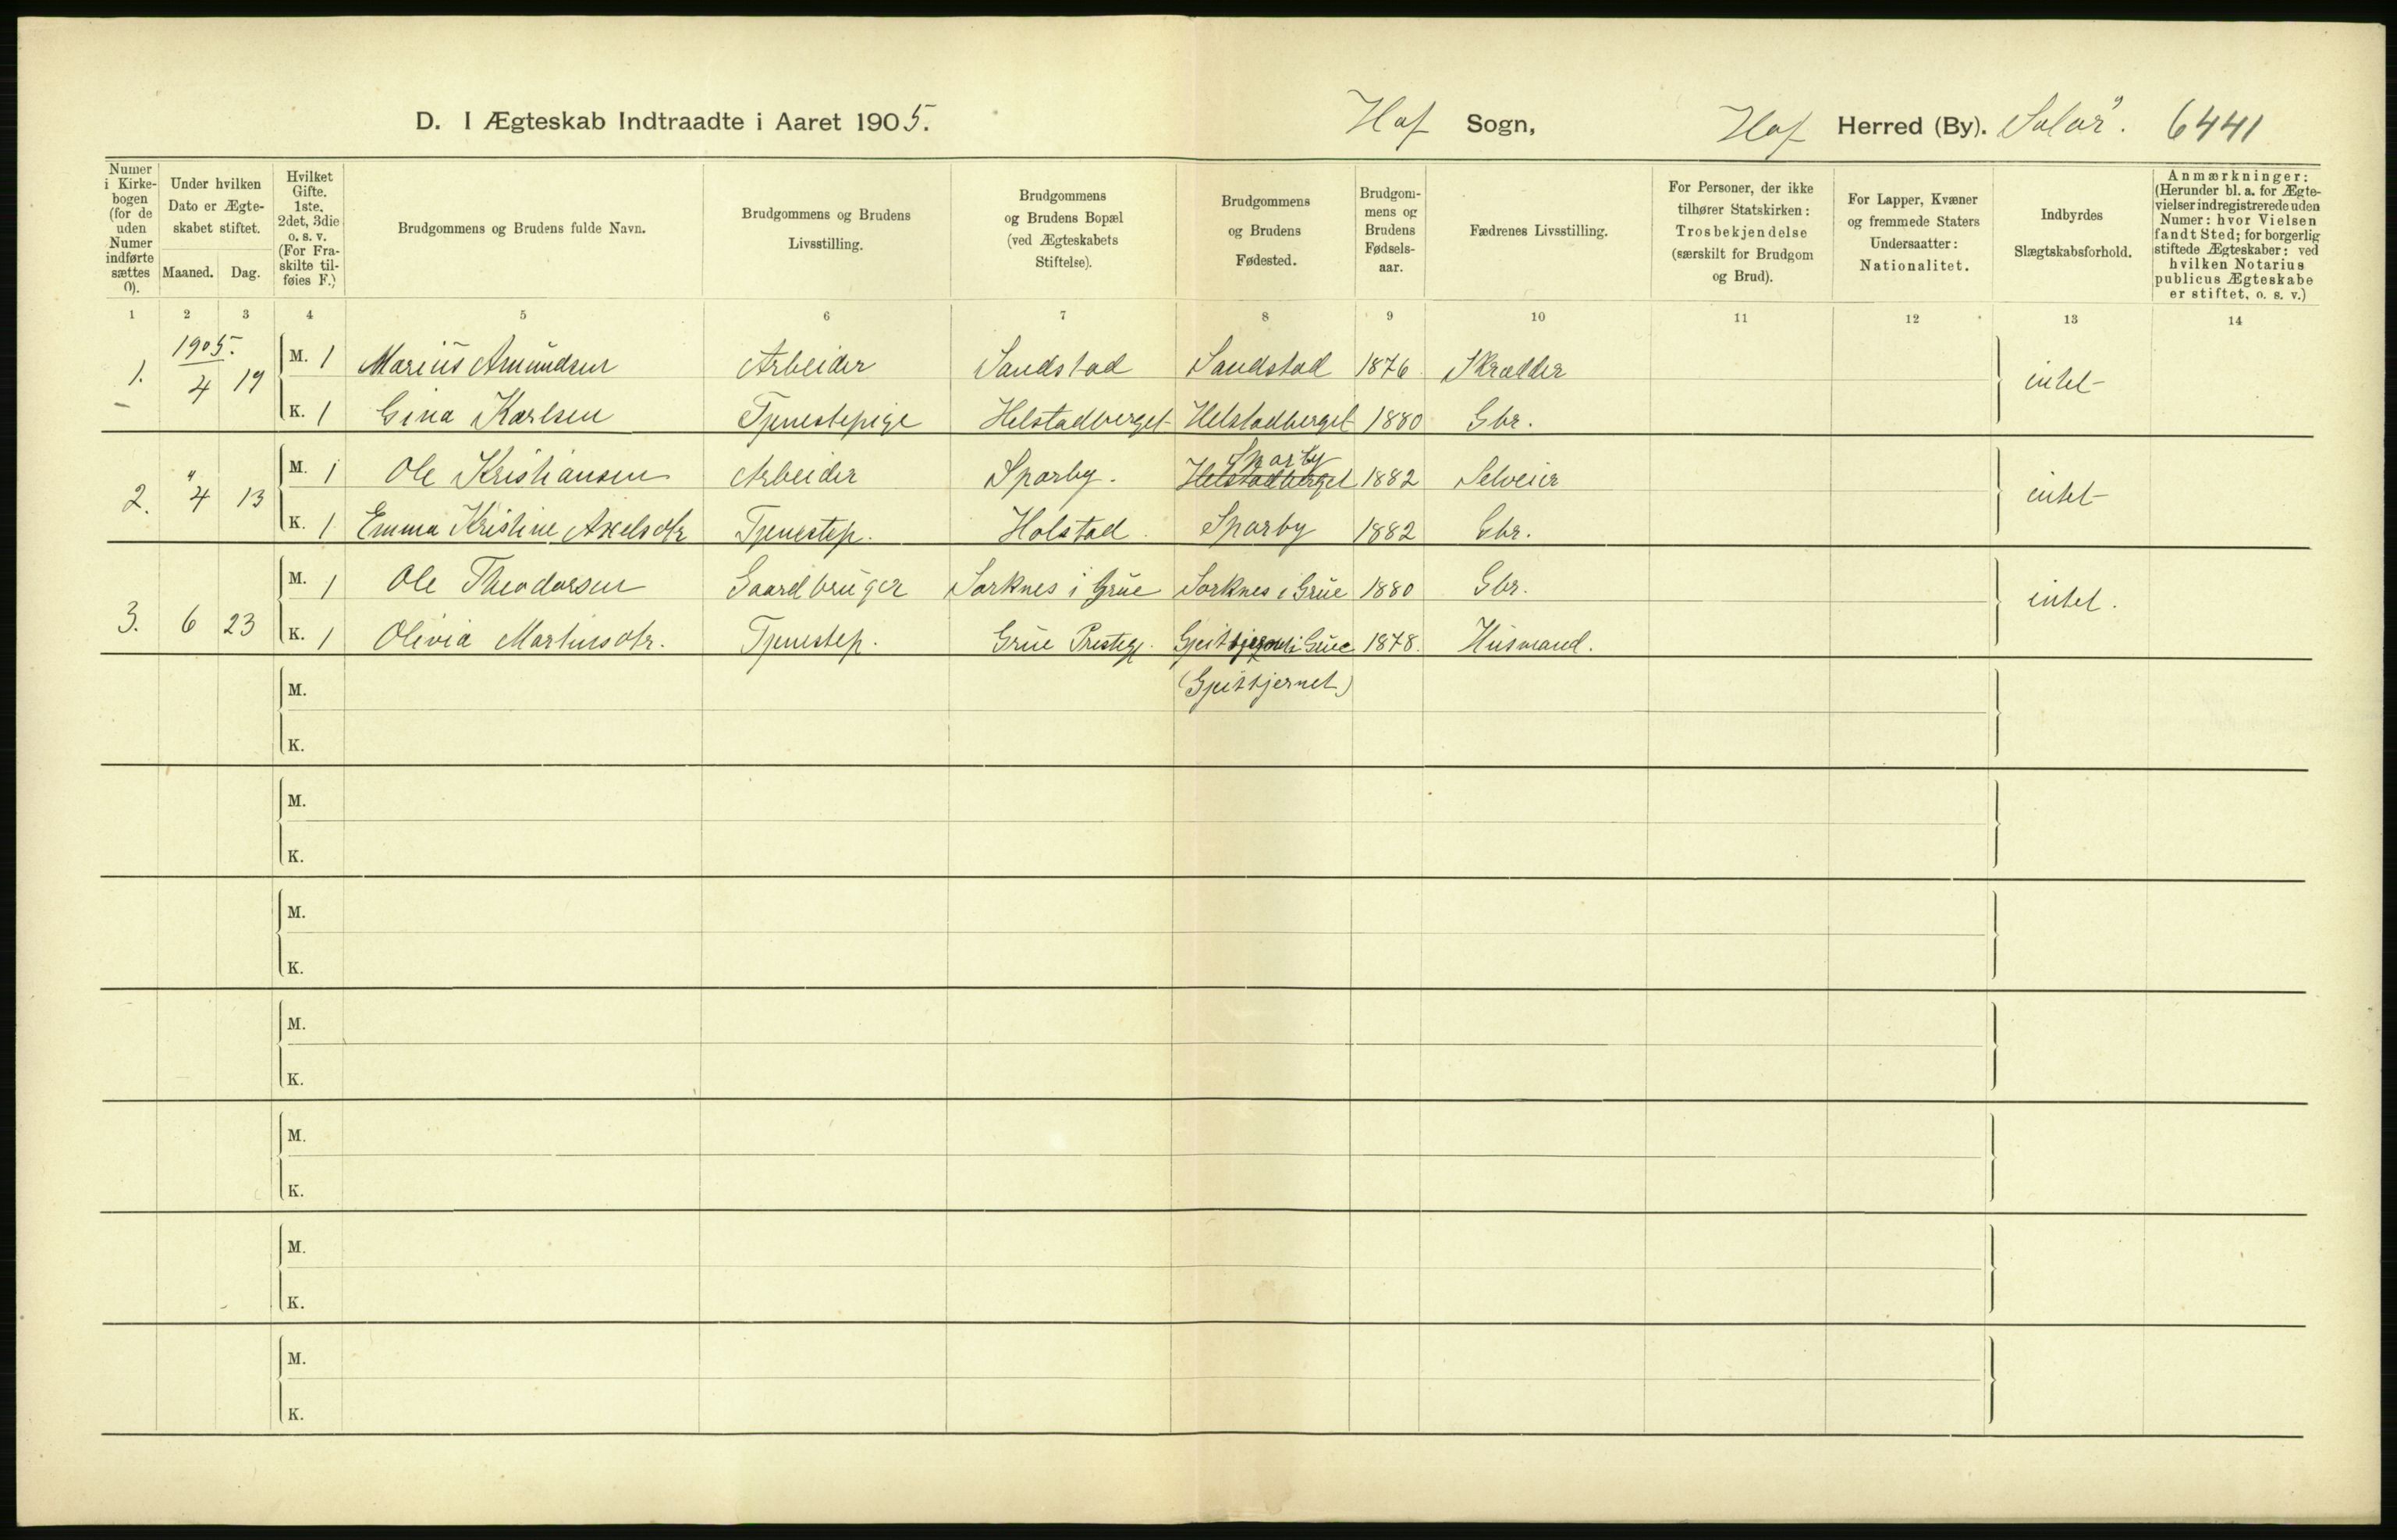 D. I Ægteskab Indtraadte i Aaret 1905. Hof Sogn, Hof Herred (By). Solør. 6441
Numer i Kirkebogen (for de uden Numer indførte sættes 0).
Under hvilken Dato er Ægteskabet stiftet.
Maaned. Dag.
Hvilket Gifte. 1ste, 2det, 3die o. s. v. (For Fraskilte tilføies F.)
Brudgommens og Brudens fulde Navn.
Brudgommens og Brudens Livsstilling.
Brudgommens og Brudens Bopæl (ved Ægteskabets Stiftelse).
Brudgommens og Brudens Fødested.
Brudgommens og Brudens Fødselsaar.
Fædrenes Livsstilling.
For Personer, der ikke tilhører Statskirken: Trosbekjendelse (særskilt for Brudgom og Brud).
For Lapper, Kvæner og fremmede Staters Undersaatter: Nationalitet.
Indbyrdes Slægtskabsforhold.
Anmærkninger: (Herunder bl. a. for Ægtevielser indregistrerede uden Numer: hvor Vielsen fandt Sted; for borgerlig stiftede Ægteskaber: ved hvilken Notarius publicus Ægteskabe er stiftet, o. s. v.)
1 2 3 4 5 6 7 8 9 10 11 12 13 14
1905.
1. 4 19 M. 1 Marius Amundsen Arbeider Sandstad Sandstad 1876 Skrædder intet
K. 1 Gina Karlsen Tjenestepige Helstadberget Helstadberget 1880 Gbr.
Sparby
2. " 4 13 M. 1 Ole Kristiansen Arbeider Sparby. Helstadberget 1882 Selveier intet
K. 1 Emma Kristine Axelsdtr Tjenestep. Holstad Sparby 1882 Gbr.
3. 6 23 M. 1 Ole Theodorsen Gaardbruger Sorknes i Grue Sorknes i Grue 1880 Gbr. intet.
K. 1 Olivia Martinsdtr. Tjenestep. Grue Prestegj. i Grue 1878. Husmand.
M. (Gjeittjernet)
K.
M.
K.
M.
K.
M.
K.
M.
K.
M.
K.
M.
K.